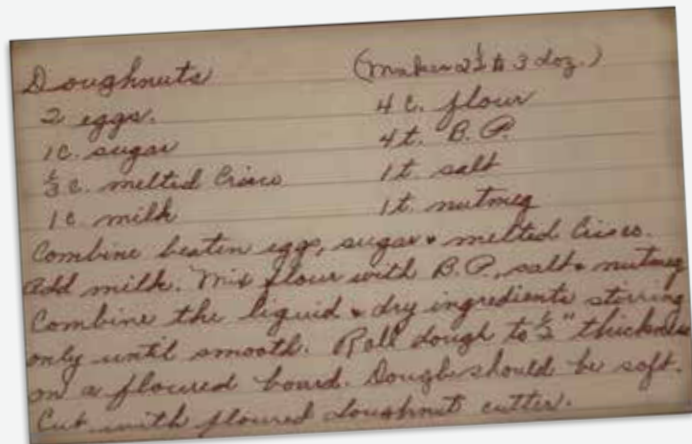 Doughnuts (Makes 2½ to 3 doz.)
2 eggs. 4 c. flour
1 c. sugar 4 t. B.P.
⅓ c. melted Crisco 1 t. salt
1 c. milk 1 t. nutmeg
Combine beaten eggs, sugar & melted Crisco.
Add milk. Mix flour with B.P., salt & nutmeg
Combine the liquid & dry ingredients stirring
only until smooth. Roll dough to ½" thickness
on a floured board. Dough should be soft.
Cut with floured doughnut cutter.